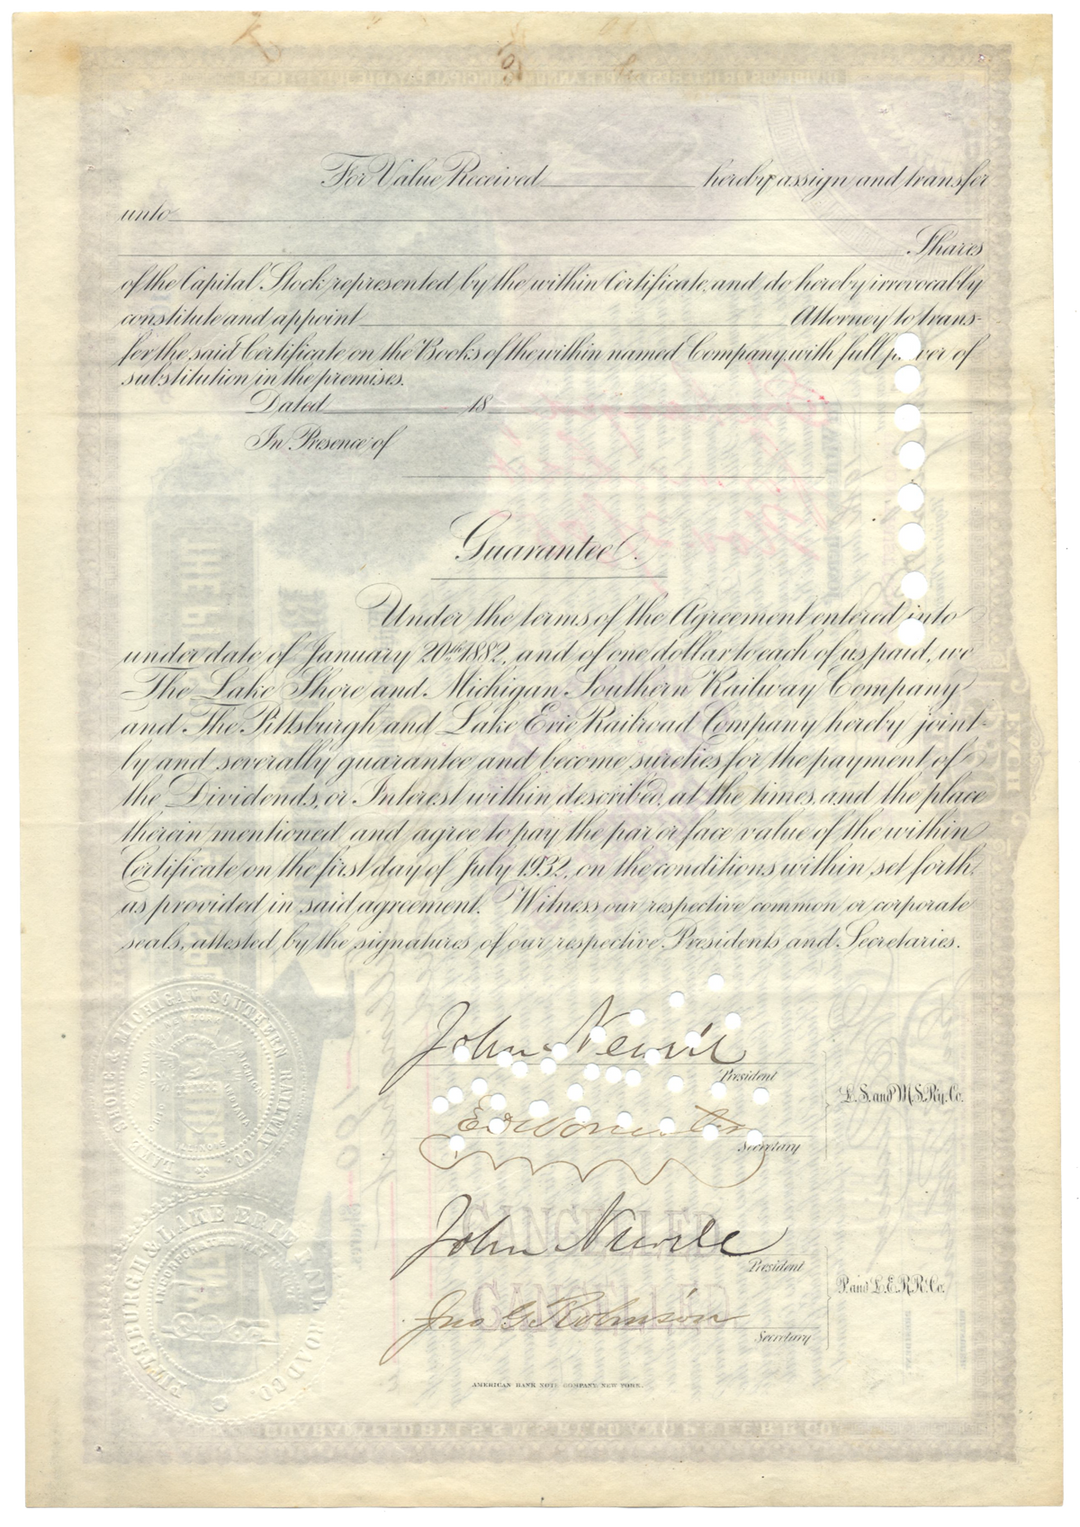 For Value Received hereby assign and transfer
unto
Shares
of the Capital Stock represented by the within Certificate, and do hereby irrevocably
constitute and appoint Attorney to trans-
fer the said Certificate on the Books of the within named Company, with full power of
substitution in the premises.
Dated 18
In Presence of
Guarantee.
Under the terms of the Agreement entered into
under date of January 20th 1882, and of one dollar to each of us paid, we
The Lake Shore and Michigan Southern Railway Company
and The Pittsburgh and Lake Erie Railroad Company hereby joint-
ly and severally guarantee and become sureties for the payment of
the Dividends, or Interest within described, at the times, and the place
therein mentioned, and agree to pay the par or face value of the within
Certificate on the first day of July 1932, on the conditions within set forth,
as provided in said agreement. Witness our respective common or corporate
seals, attested by the signatures of our respective Presidents and Secretaries.
John Newell
President
L. S. and M. S. Ry. Co.
E D Worcester
Secretary
CANCELLED
John Newell
President
P. and L. E. R. R. Co.
CANCELLED
Jno G. Robinson
Secretary
AMERICAN BANK NOTE COMPANY, NEW YORK.
SHORE & MICHIGAN SOUTHERN RAILWAY CO.
PITTSBURGH & LAKE ERIE RAILROAD CO